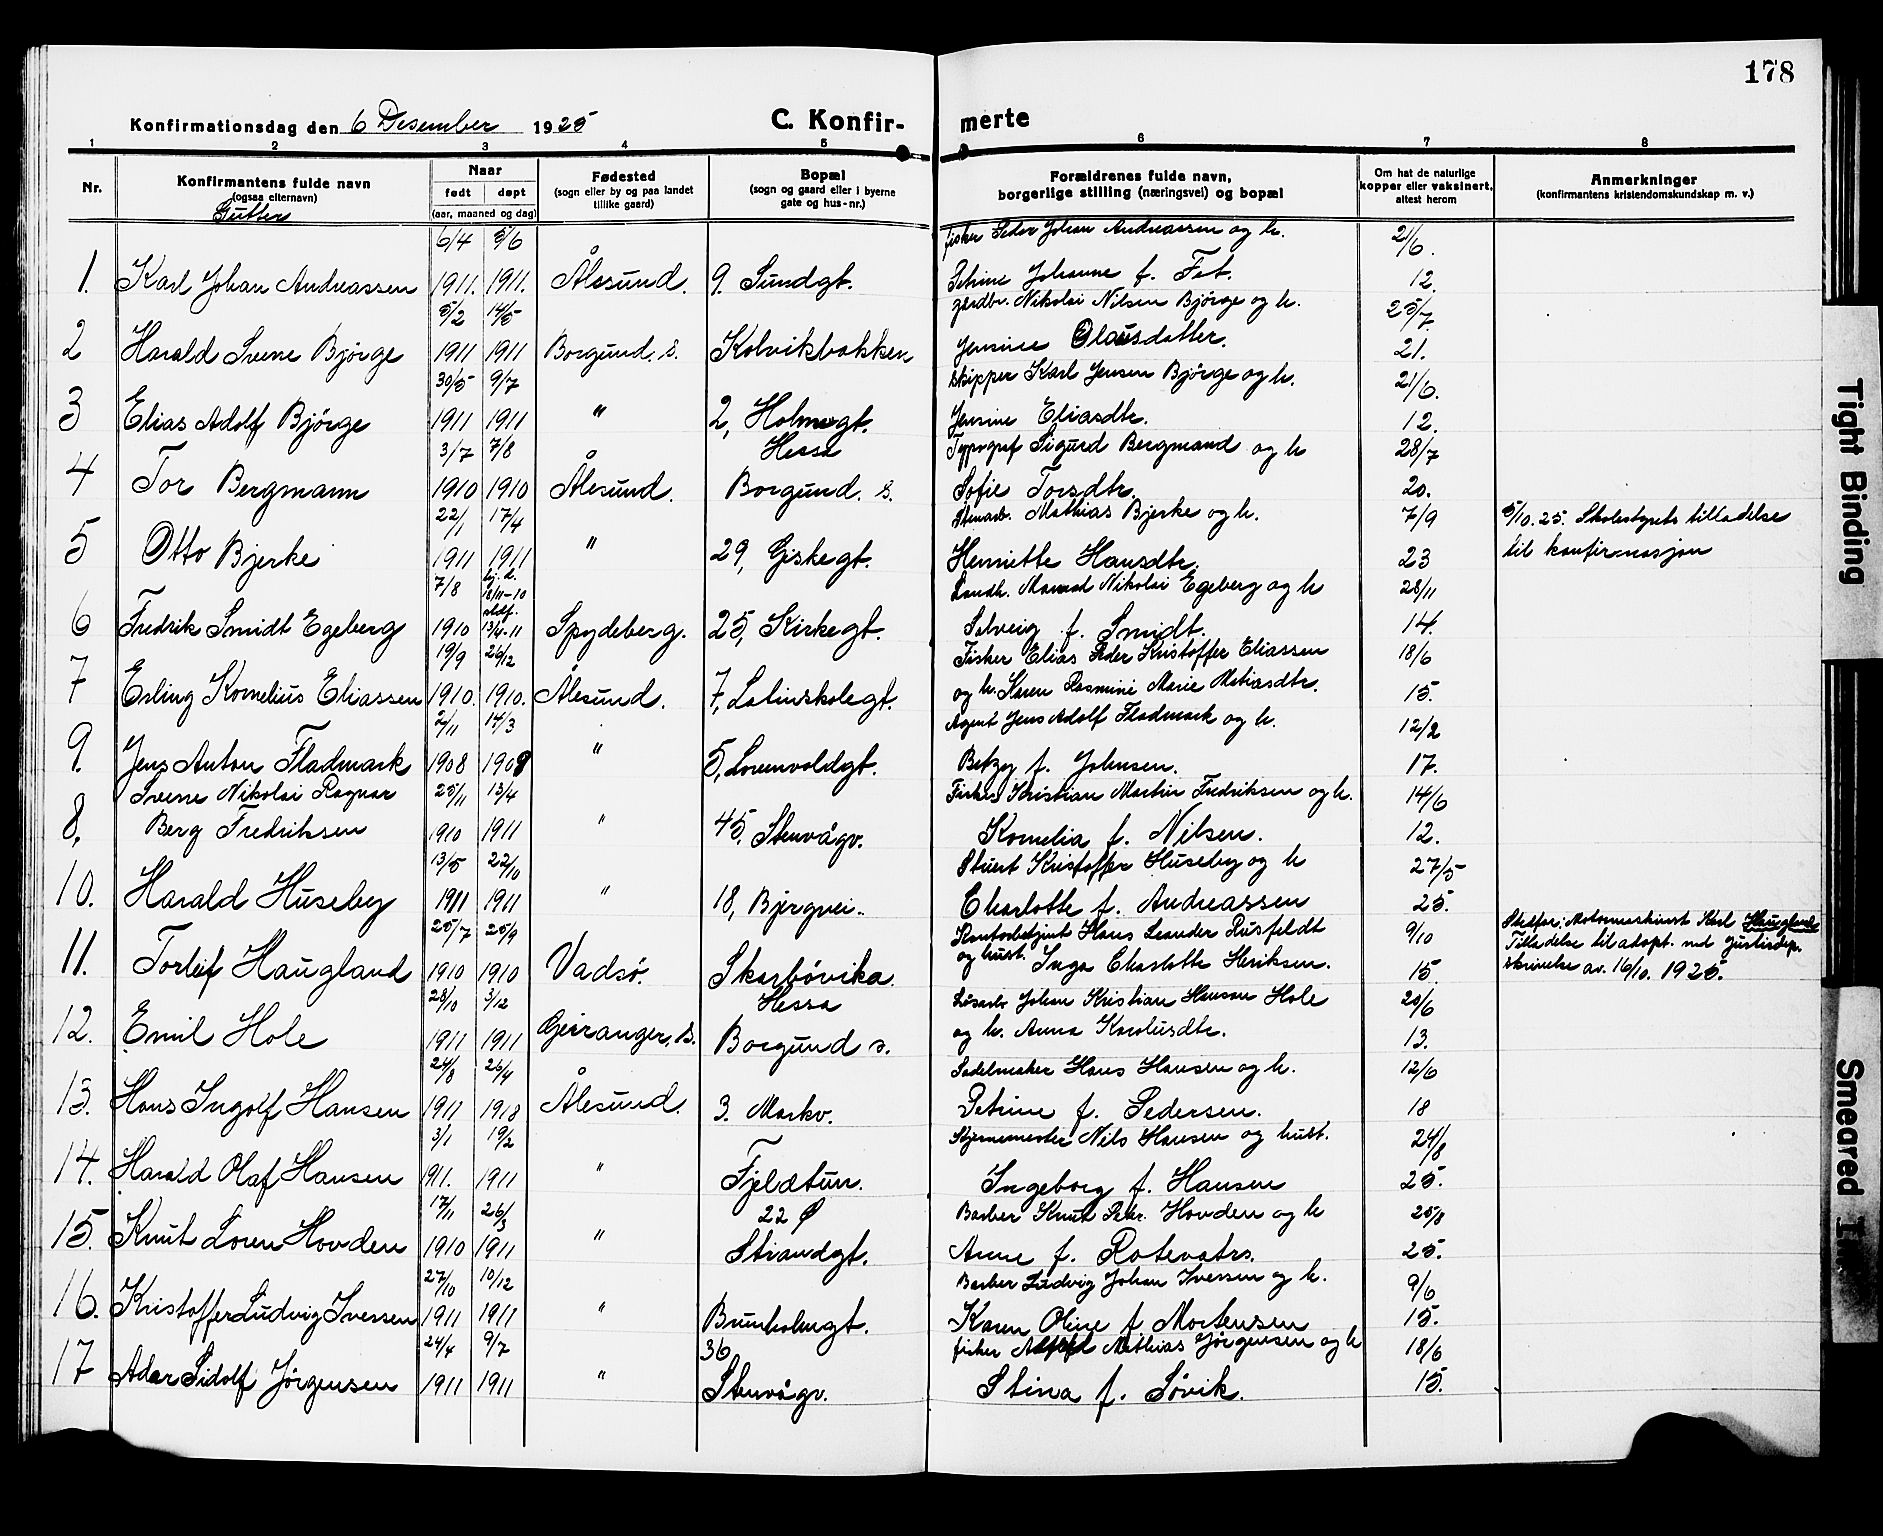 178
Konfirmationsdag den 6 Desember 1925 C. Konfir- merte
1 2 3 4 5 6 7 8
Nr.
Konfirmantens fulde navn
(ogsaa etternavn)
Gutter
Naar
født døpt
(aar, maaned og dag)
Fødested
(sogn eller by og paa landet
tillike gaard)
Bopæl
(sogn og gaard eller i byerne
gate og hus-nr.)
Forældrenes fulde navn,
borgerlige stilling (næringsvei) og bopæl
Om hat de naturlige
kopper eller vaksinert,
attest herom
Anmerkninger
(konfirmantens kristendomskundskap m. v.)
6/4 5/6 fisker Peder Johan Andreassen og h. 21/6.
1. Karl Johan Andreassen 1911. 1911. Ålesund. 9. Sundgt. Petrine Johanne f. Fet. 12.
5/2 14/5 gardbr. Nikolai Nilsen Bjørge og h. 25/7.
2 Harald Svene Bjørge 1911 1911 Borgund. s. Kolvikbakken Jensine Olausdatter. 21.
30/5 9/7 skipper Karl Jensen Bjørge og h. 21/6.
3 Elias Adolf Bjørge 1911 1911 " 2, Holmegt. Jensine Eliasdtr. 12.
3/7 7/8 Hessa Typograf Sigurd Bergmand og h 28/7
4 Tor Bergmann 1910 1910 Ålesund. Borgund. s. Sofie Torsdtr. 20.
22/1 17/4 Stenarb. Mathias Bjerke og h. 7/9 5/10.25. Skolestyrets tilladelse
5 Otto Bjerke 1911 1911 " 29, Giskegt. Henriette Hansdtr. 23 til konfirmasjon
7/8 hj. d. 18/11-10 Landh. Nikolai Egeberg og h 28/11
stdf.
6 Fredrik Smidt Egeberg 1910 13/4-11 Spydeberg. 25, Kirkegt. Solveig f. Smidt. 14.
19/9 26/12 Fisker Elias Peder Kristoffer Eliassen 18/6
7 Erling Kornelius Eliassen 1910. 1910. Ålesund. 7, Latinskolegt. og h. Karen Rasmine Marie Matiasdtr. 15.
2/11 14/3 Agent Jens Adolf Fladmark og h. 12/2
9. Jens Anton Fladmark 1908 1909 " 5, Lorenvoldgt. Betzy f. Johnsen. 17.
Svene Nikolai Ragnar 25/11 13/4 Fisker Kristian Martin Fredriksen og h. 14/6
8, Berg Fredriksen 1910 1911 " 45. Stenvågv. Kornelia f. Nilsen. 12.
13/5 22/10 Stuert Kristoffer Huseby og h 27/5
10. Harald Huseby 1911 1911 " 18, Bjergvei.. Charlotte f. Andreassen 25.
25/7 25/9 Kontorbetjent Hans Leander Rusfeldt 9/10 Stedfar: Motormaskinist Karl Haugland
11. Torleif Haugland 1910 1910 Vadsø. Skarbövika. og hust. Inga Charlotte Henriksen. 15. Tilladelse til adopt. ved Justisdep.
skrivelse av. 16/10. 1925.
28/10 3/12 Hessa Løsarb. Johan Kristian Hansen Hole 20/6
12. Emil Hole 1911 1911 Geiranger, s. Borgund s. og h. Anna Karolusdtr. 13.
24/8 26/4 Sadelmaker Hans Hansen og h. 12/6
13. Hans Ingolf Hansen 1911 1918 Ålesund. 3. Markv. Petrine f. Pedersen. 18
3/1 19/2 Stjernemester Nils Hansen og hust. 24/8
14. Harald Olaf Hansen 1911. 1911 " Fjeldtun. Ingeborg f. Hansen 25.
17/11 26/3 22 Ø Barber Knut Petr. Hovden og h 25/8
15. Knut Loren Hovden 1910 1911 " Strandgt. Anne f. Rotevatn. 25.
27/10 10/12 Barber Ludvig Johan Iversen og h. 9/6
16. Kristoffer Ludvig Iversen 1911 1911 " Bunholmgt. Karen Oline f. Mortensen 15.
24/4 9/7 36 fisker Mathias Jørgensen og h 18/6
17 Adar Sidolf Jørgensen 1911 1911 " Stenvågv. Stina f. Søvik. 15.
Tight Binding
Smeared